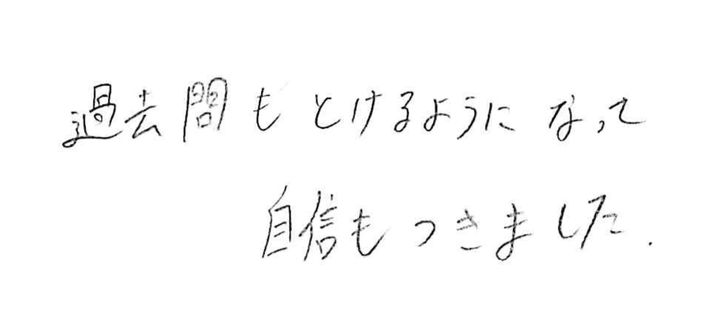 過去問もとけるようになって
自信もつきました.